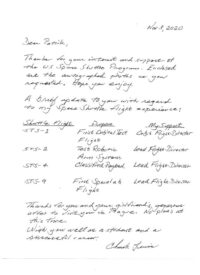 Nov 3, 2020
Dear Patrik,
Thanks for your interest and support of
the US Space Shuttle Program. Enclosed
are the autographed photos as you
requested. Hope you enjoy.
A brief update to you with regard
to my Space Shuttle flight experience:
Shuttle Flight Purpose My Support
STS-1 First Orbital Test Flight Orbit Flight Director
STS-2 Test Robotic Arm System Lead Flight Director
STS-4 Classified Payload Lead Flight Director
STS-9 First Spacelab Flight Lead Flight Director
Thanks for you and your girlfriend's
offer to visit you in Prague. No plans at
this time.
Wish you well as a student and a
successful career.
Chuck Lewis